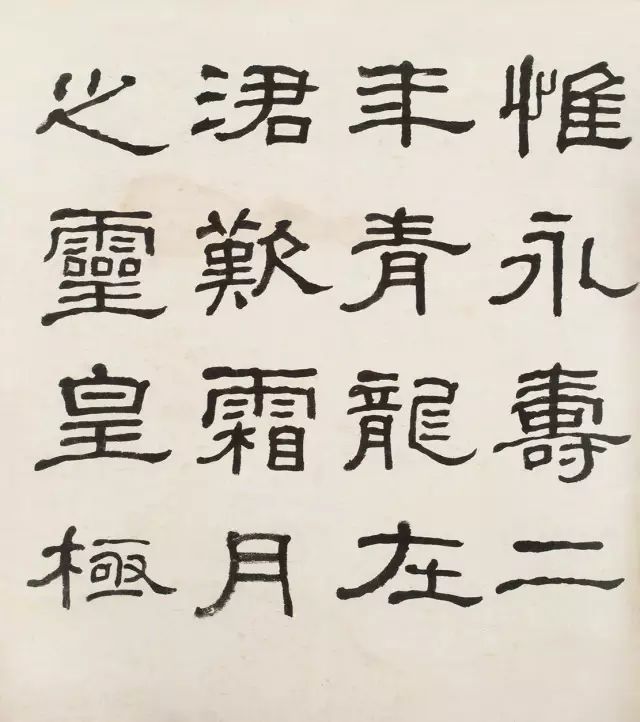 惟永壽二
年青龍在
涒歎霜月
之靈皇極